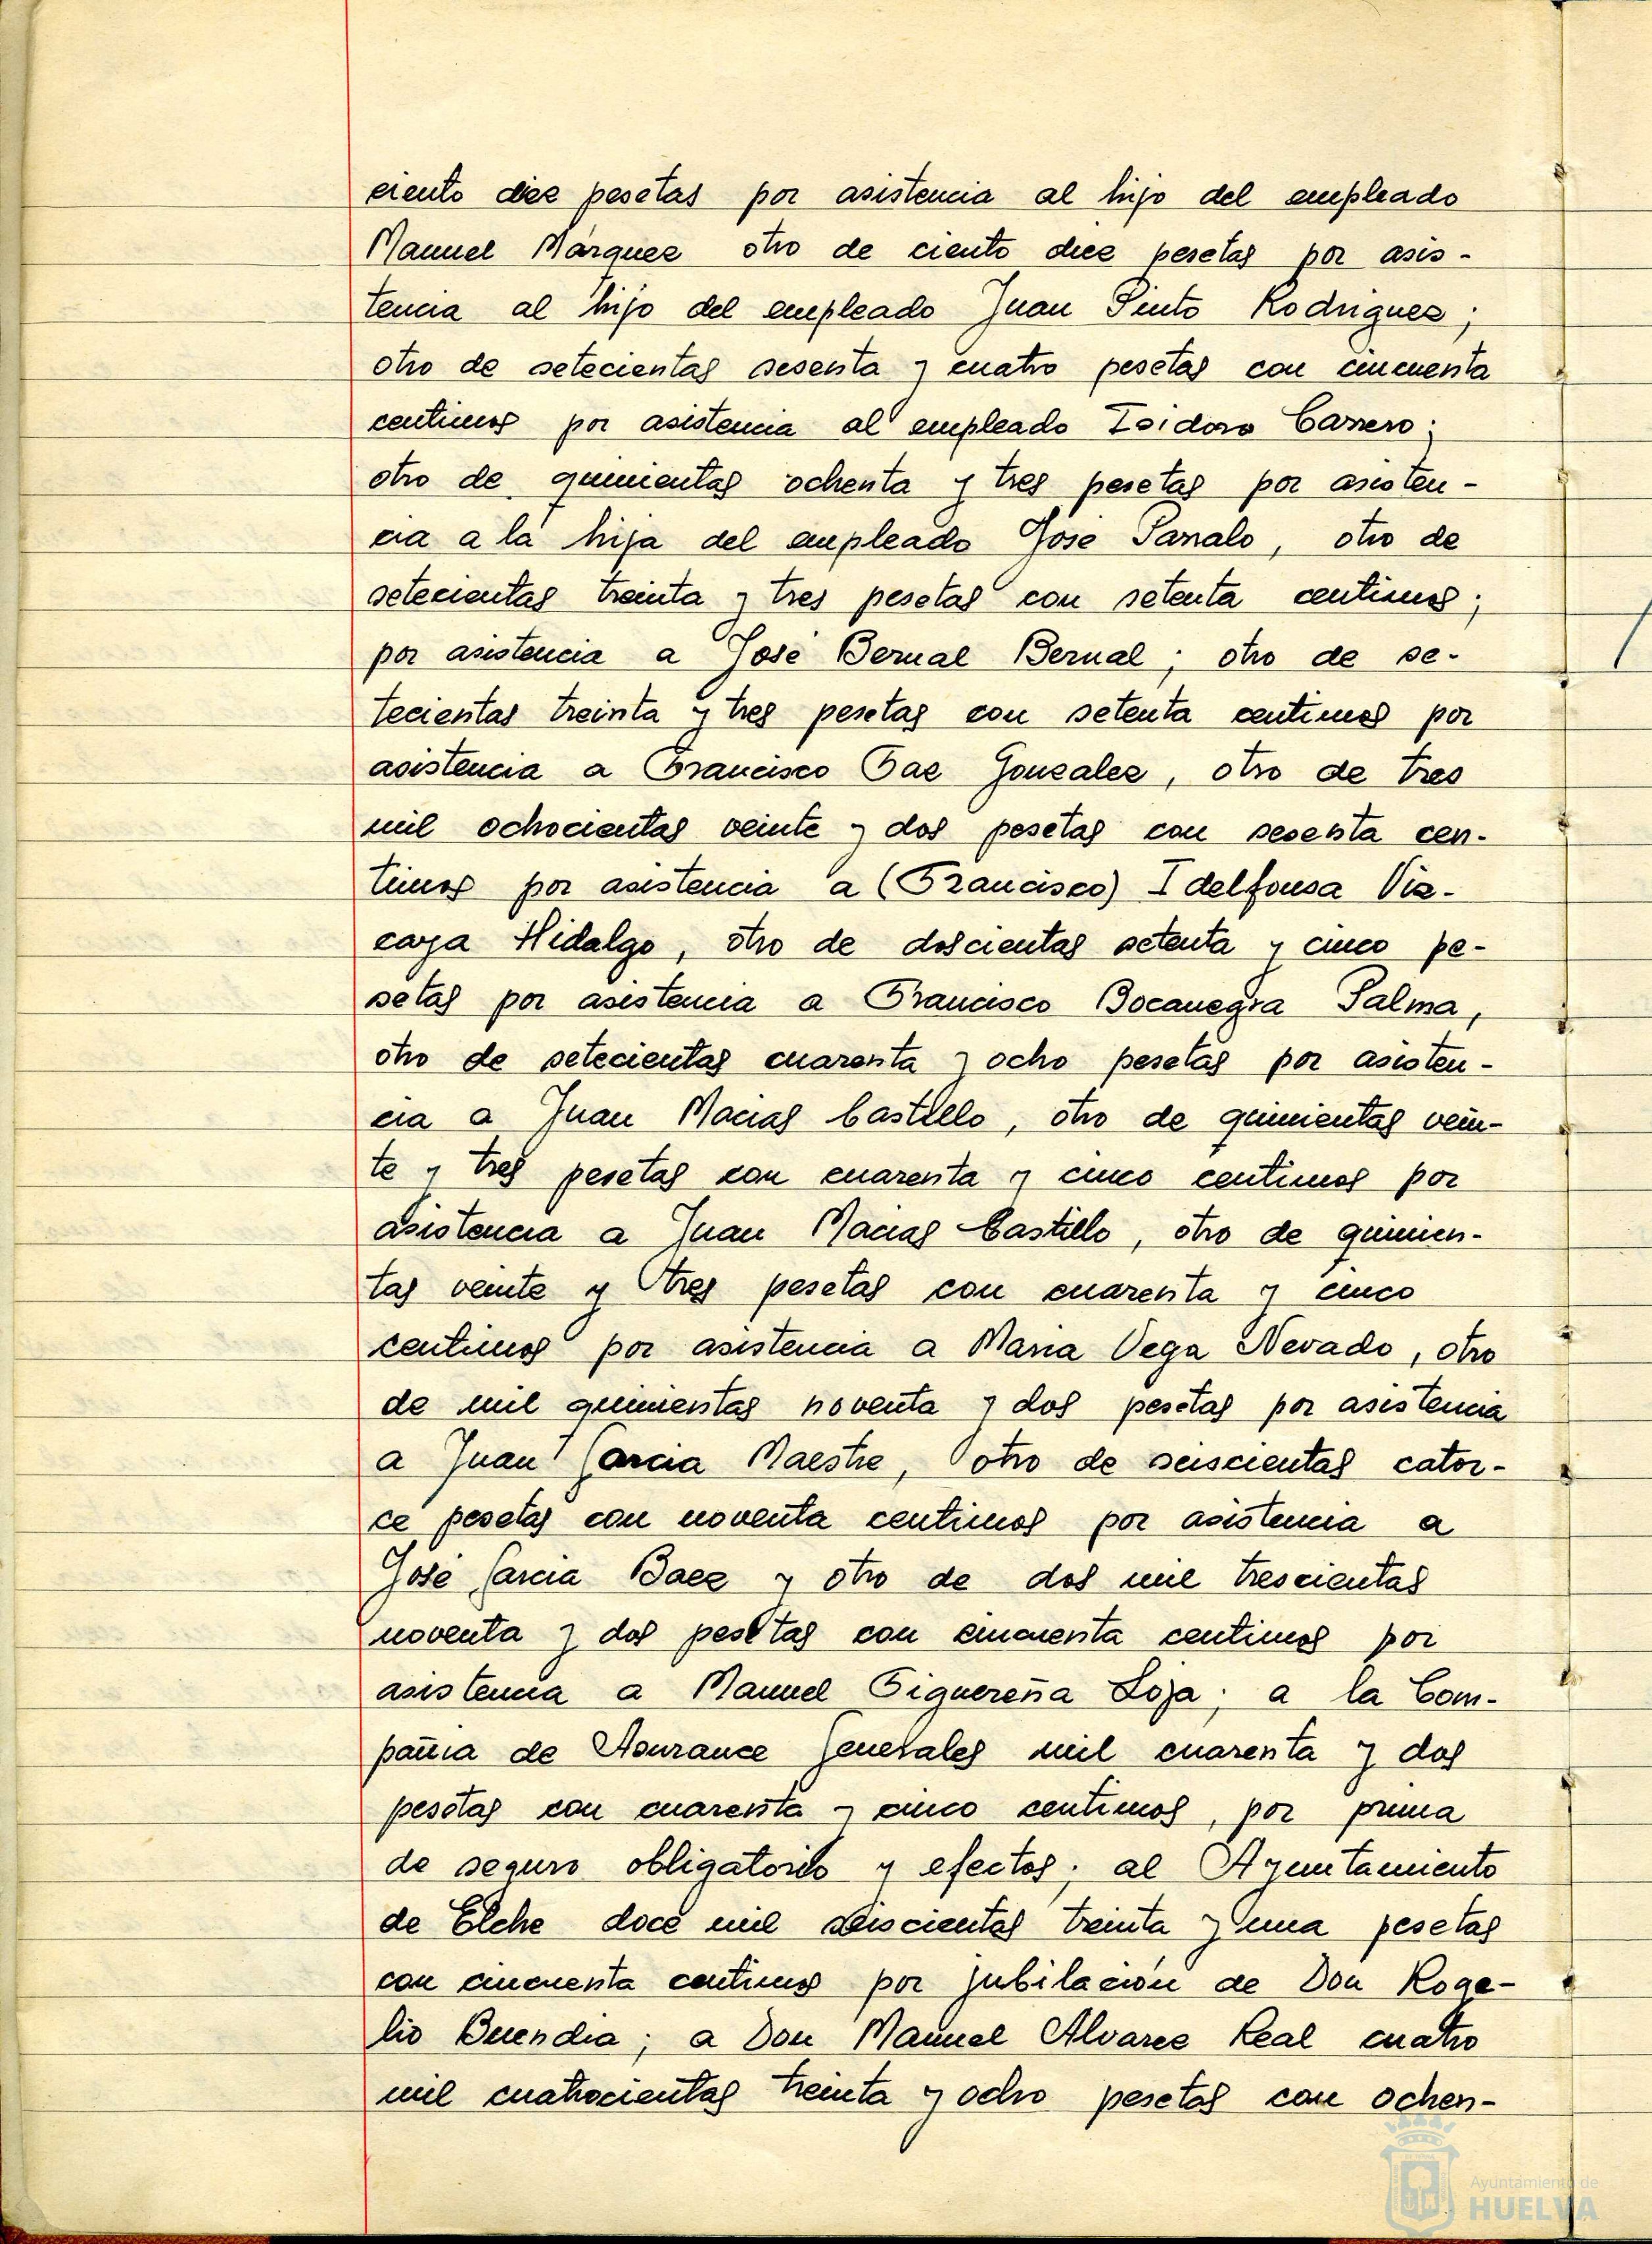 ciento diez pesetas por asistencia al hijo del empleado
Manuel Márquez otro de ciento diez pesetas por asis-
tencia al hijo del empleado Juan Pinto Rodriguez;
otro de setecientas sesenta y cuatro pesetas con cincuenta
centimos por asistencia al empleado Isidoro Carrero;
otro de quinientas ochenta y tres pesetas por asisten-
cia a la hija del empleado José Parralo, otro de
setecientas treinta y tres pesetas con setenta centimos;
por asistencia a José Bernal Bernal; otro de se-
tecientas treinta y tres pesetas con setenta centimos por
asistencia a Francisco Paz Gonzalez, otro de tres
mil ochocientas veinte y dos pesetas con sesenta cen-
timos por asistencia a (Francisco) Idelfonsa Viz-
caya Hidalgo, otro de doscientas setenta y cinco pe-
setas por asistencia a Francisco Bocanegra Palma,
otro de setecientas cuarenta y ocho pesetas por asisten-
cia a Juan Macias Castillo, otro de quinientas vein-
te y tres pesetas con cuarenta y cinco centimos por
asistencia a Juan Macias Castillo, otro de quinien-
tas veinte y tres pesetas con cuarenta y cinco
centimos por asistencia a Maria Vega Nevado, otro
de mil quinientas noventa y dos pesetas por asistencia
a Juan Garcia Maestre, otro de seiscientas cator-
ce pesetas con noventa centimos por asistencia a
José Garcia Baez y otro de dos mil trescientas
noventa y dos pesetas con cincuenta centimos por
asistencia a Manuel Figuereña Loja; a la Com-
pañia de Assurance Generales mil cuarenta y dos
pesetas con cuarenta y cinco centimos, por prima
de seguro obligatorio y efectos; al Ayuntamiento
de Elche doce mil seiscientas treinta y una pesetas
con cincuenta centimos por jubilación de Don Roge-
lio Buendia; a Don Manuel Alvarez Real cuatro
mil cuatrocientas treinta y ocho pesetas con ochen-
Ayuntamiento de
HUELVA